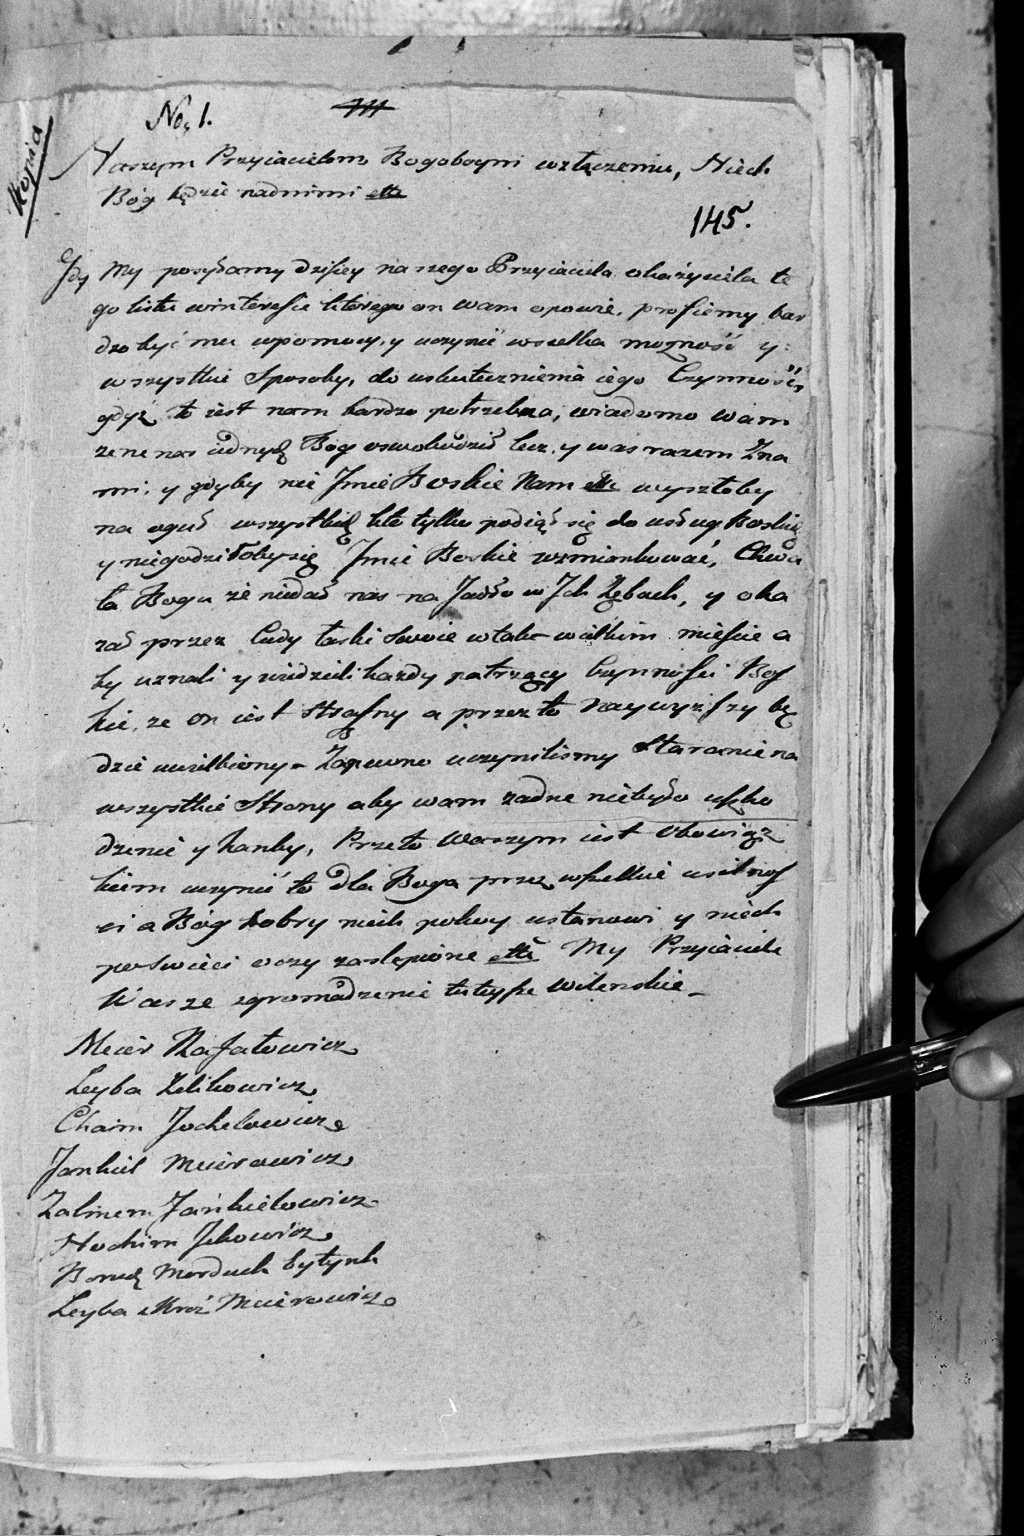 No, 1.
Kopia
Naszym Przyiacielom Bogoboyni wzłączeniu, Niech
Bóg będzie nadnimi etc
145.
Gdy My posyłamy dzisiey naszego Przyiaciela okaźyciela te
go listu winteresie którego on wam opowie, prosiemy bar
dzo być mu wpomocy, y uczynić wszelka mozność y
wszystkie Sposoby, do uskutecznienia iego Czynności,
gdyż to iest nam bardzo potrzebna, wiadomo wam
zene nas iednych Bog oswobodził lecz y was razem Zna
mi; y gdyby nie Jmie Boskie Nam etc wyszłoby
na oguł wszystkich kto tylko podiął się do usług Boskich
y niegodziłobysię Jmie Boskie wzmiankować, Chwa
ła Bogu że niedał nas na Jadło w Jch Zębach, y oka
zał przez Cudy łaski swoie wtak wielkim mieście a
by uznali y widzieli kazdy patrzący Czynności Bos
kie, ze on iest Straszny a przez to Naywyższy bę
dzie uwielbiony Zapewno uczyniliśmy Staranie na
wszystkie Strony aby wam zadne niebyło uszko
dzenie y hanby, Przeto Waszym iest Obowiąz
kiem uczynić to dla Boga przez wszelkie usilnoś
ci a Bóg dobry niech pokoy ustanowi y niech
poswieci oczy zaslepione etc My Przyiaciele
Wasze zgromadzenie tuteysze Wilenskie
Meier Rafałowicz
Leyba Zelikowicz
Chaim Jochelowicz
Jankiel Meierowicz
Zalmen Jankielowicz
Nochim Jckowicz
Boruch Morduch Cytynk
Leyba Meierowicz